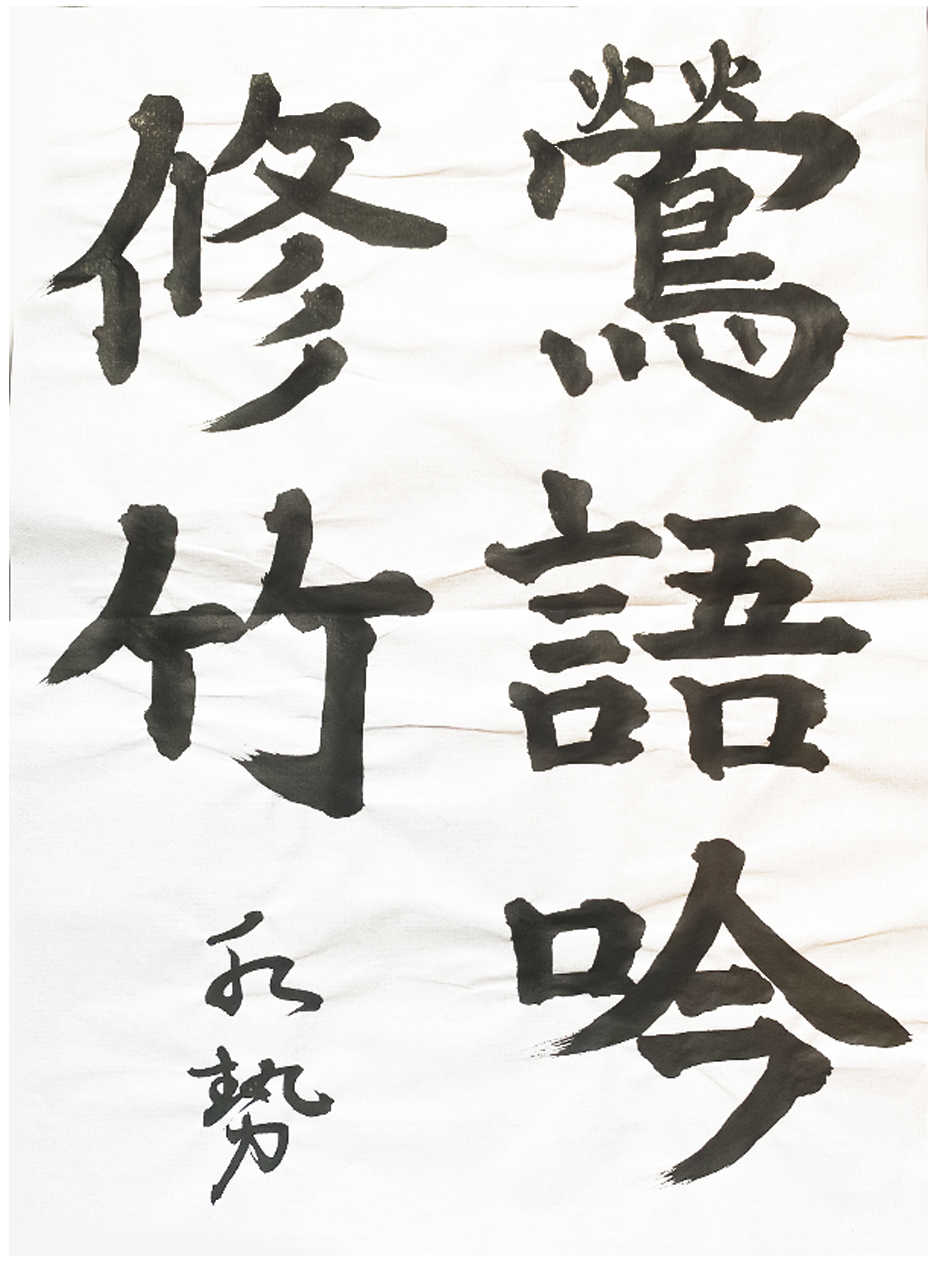 鶯語吟
修竹
永勢